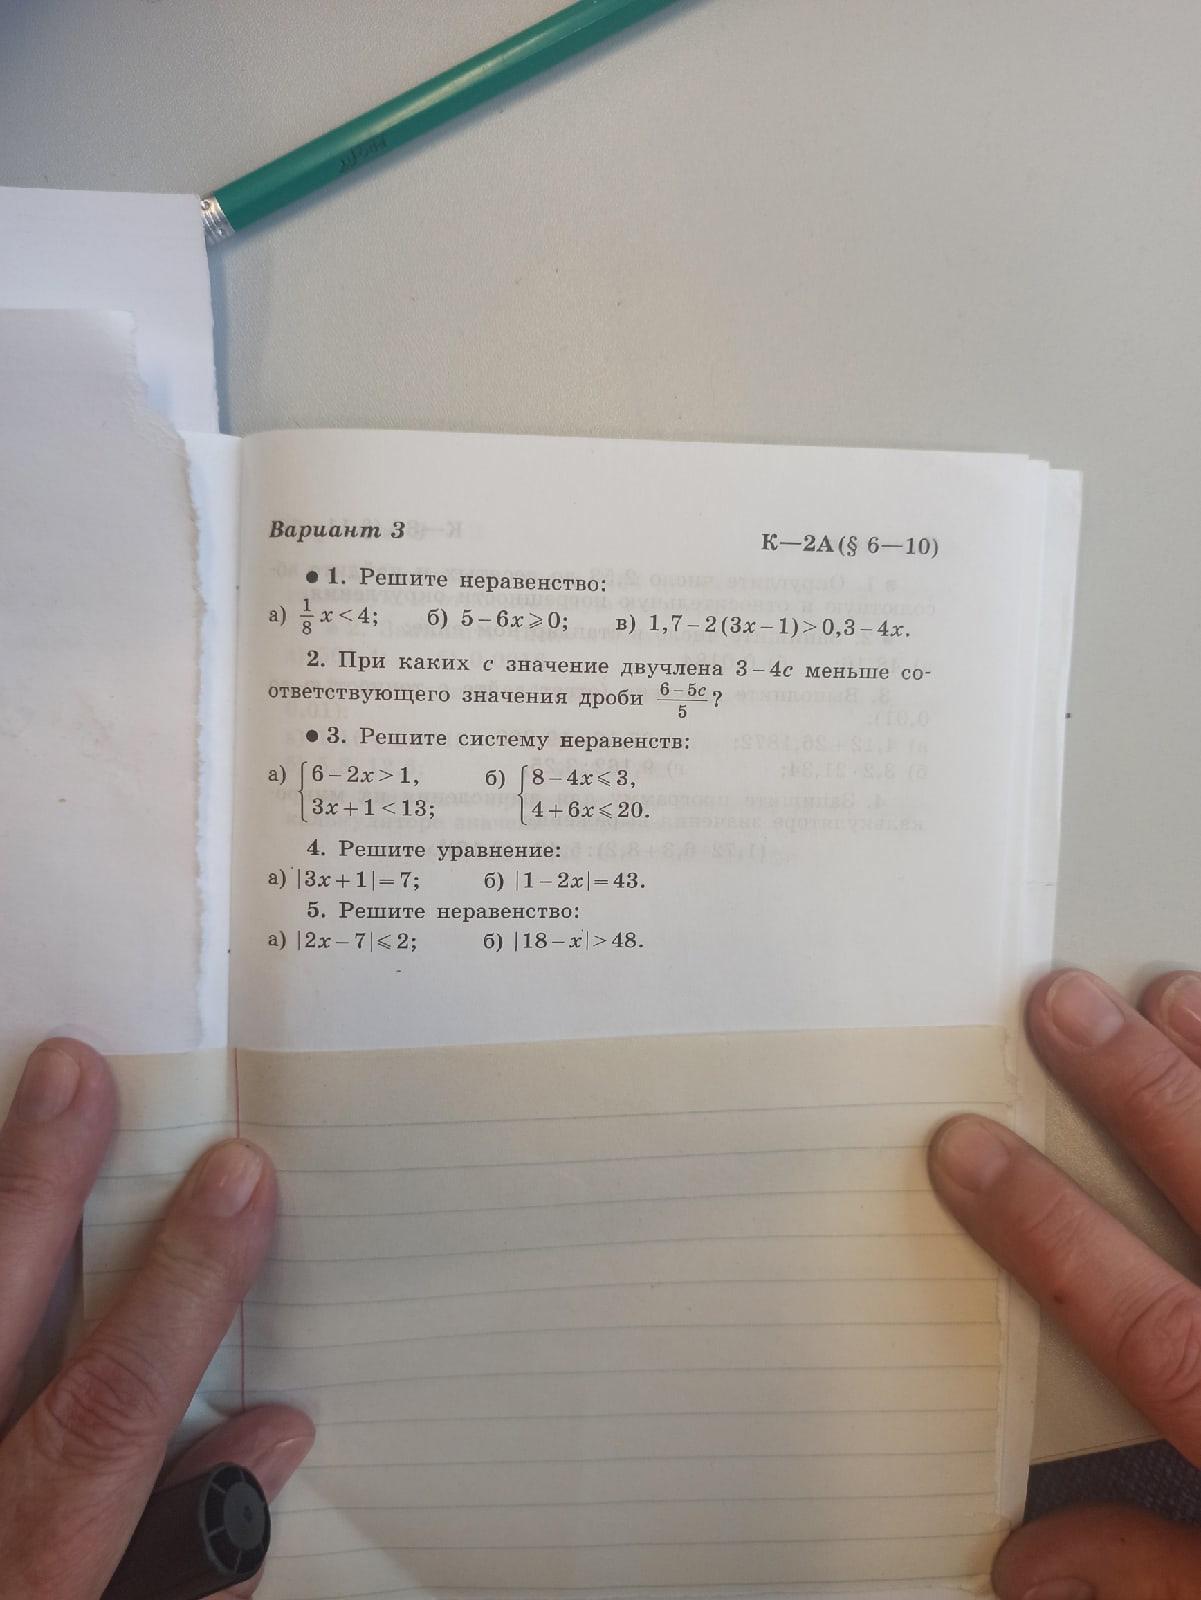 Вариант 3
К—2А (§ 6—10)
● 1. Решите неравенство:
а) 1/8 x < 4; б) 5 − 6x ⩾ 0; в) 1,7 − 2 (3x − 1) > 0,3 − 4x.
2. При каких c значение двучлена 3 − 4c меньше со-
ответствующего значения дроби (6 − 5c)/5 ?
● 3. Решите систему неравенств:
а) { 6 − 2x > 1, б) { 8 − 4x ⩽ 3,
3x + 1 < 13; 4 + 6x ⩽ 20.
4. Решите уравнение:
а) |3x + 1| = 7; б) |1 − 2x| = 43.
5. Решите неравенство:
а) |2x − 7| ⩽ 2; б) |18 − x| > 48.